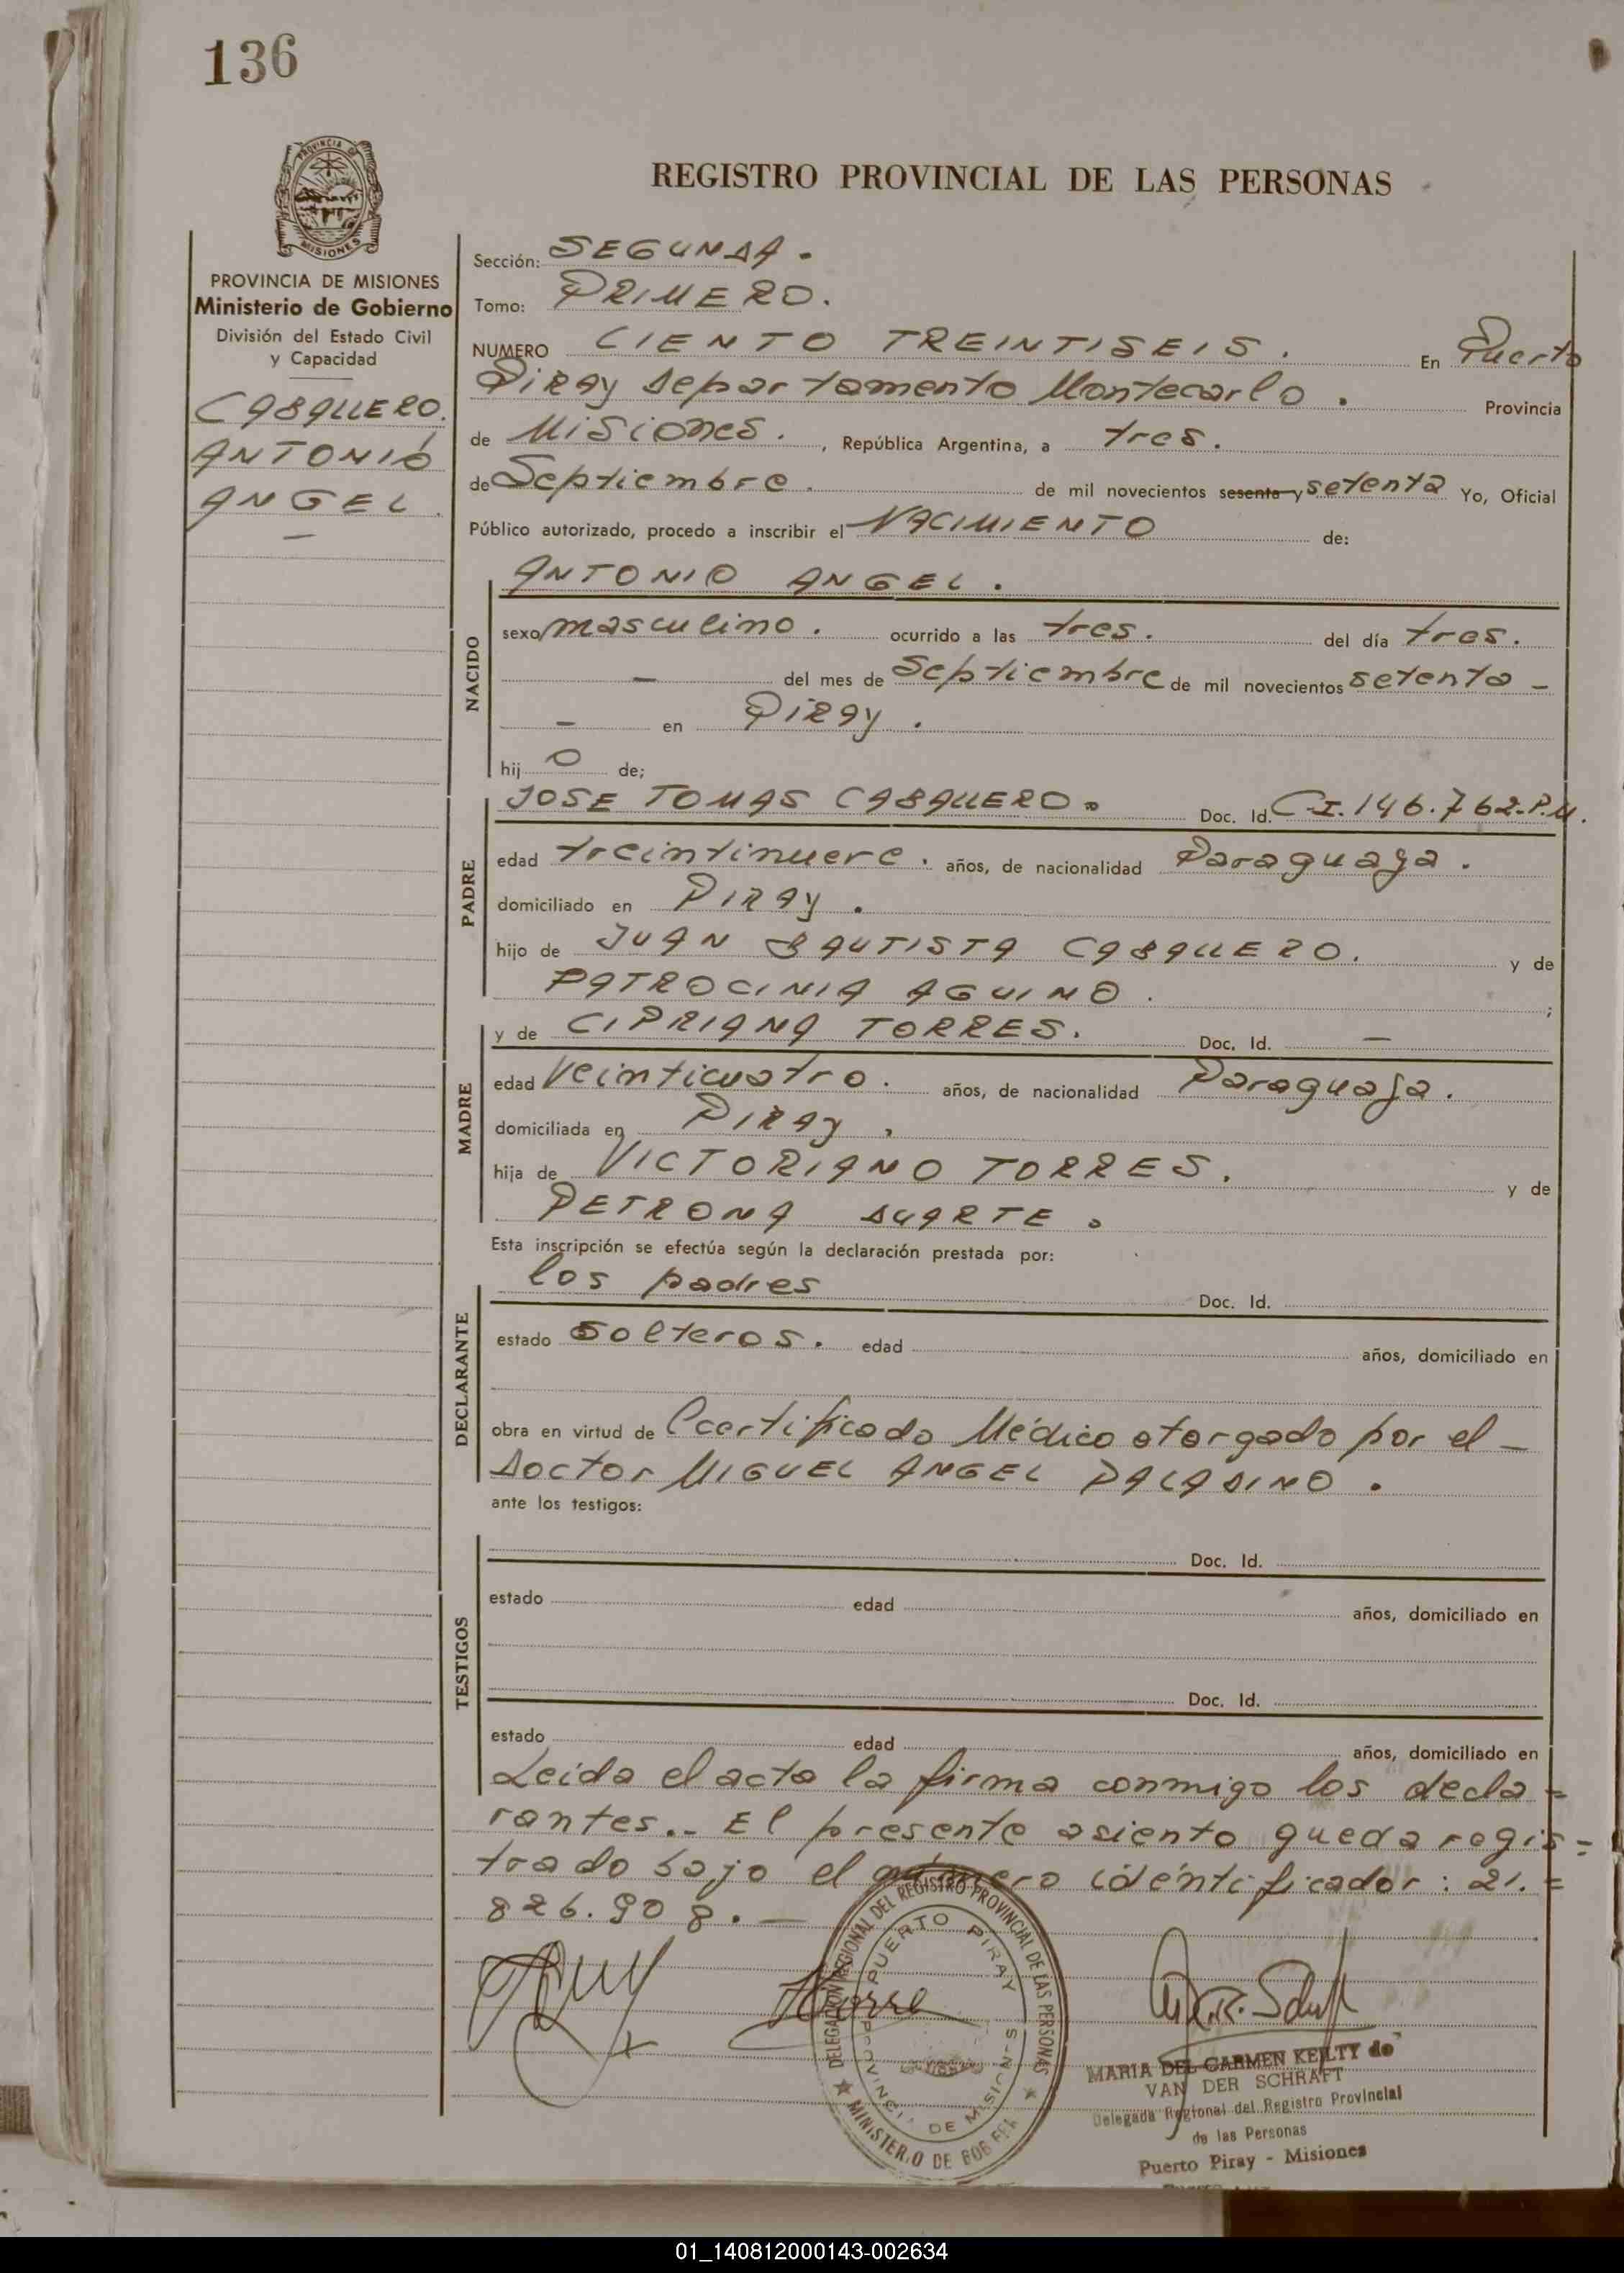 136
PROVINCIA DE
MISIONES
REGISTRO PROVINCIAL DE LAS PERSONAS
PROVINCIA DE MISIONES
Ministerio de Gobierno
División del Estado Civil
y Capacidad
CABALLERO.
ANTONIO
ANGEL.
Sección: SEGUNDA.
Tomo: PRIMERO.
NUMERO CIENTO TREINTISEIS. En Puerto
Piray departamento Montecarlo. Provincia
de Misiones., República Argentina, a tres.
de Septiembre. de mil novecientos sesenta y setenta Yo, Oficial
Público autorizado, procedo a inscribir el NACIMIENTO de:
NACIDO
ANTONIO ANGEL.
sexo masculino. ocurrido a las tres. del día tres.
— del mes de Septiembre de mil novecientos setenta —
— en Piray.
hij o de;
PADRE
JOSE TOMAS CABALLERO. Doc. Id. C.I. 146.762-P.M.
edad treintinueve. años, de nacionalidad Paraguaya.
domiciliado en Piray.
hijo de JUAN BAUTISTA CABALLERO. y de
PATROCINIA AGUINO. ;
MADRE
y de CIPRIANA TORRES. Doc. Id. —
edad Veinticuatro. años, de nacionalidad Paraguaya.
domiciliada en Piray.
hija de VICTORIANO TORRES. y de
PETRONA DUARTE.
Esta inscripción se efectúa según la declaración prestada por:
DECLARANTE
los padres Doc. Id.
estado solteros. edad años, domiciliado en
obra en virtud de Ccertificado Médico otorgado por el —
Doctor MIGUEL ANGEL PALADINO.
ante los testigos:
TESTIGOS
Doc. Id.
estado edad años, domiciliado en
Doc. Id.
estado edad años, domiciliado en
Leida el acta la firma conmigo los decla=
rantes.- El presente asiento queda regis=
trado bajo el número idéntificador: 21.=
826.908.—
DELEGACION REGIONAL DEL REGISTRO PROVINCIAL DE LAS PERSONAS
PUERTO PIRAY
PROVINCIA DE MISIONES
MINISTERIO DE
MARIA DEL CARMEN KEILTY de
VAN DER SCHRAFT
Delegada Regional del Registro Provincial
de las Personas
Puerto Piray - Misiones
01_140812000143-002634